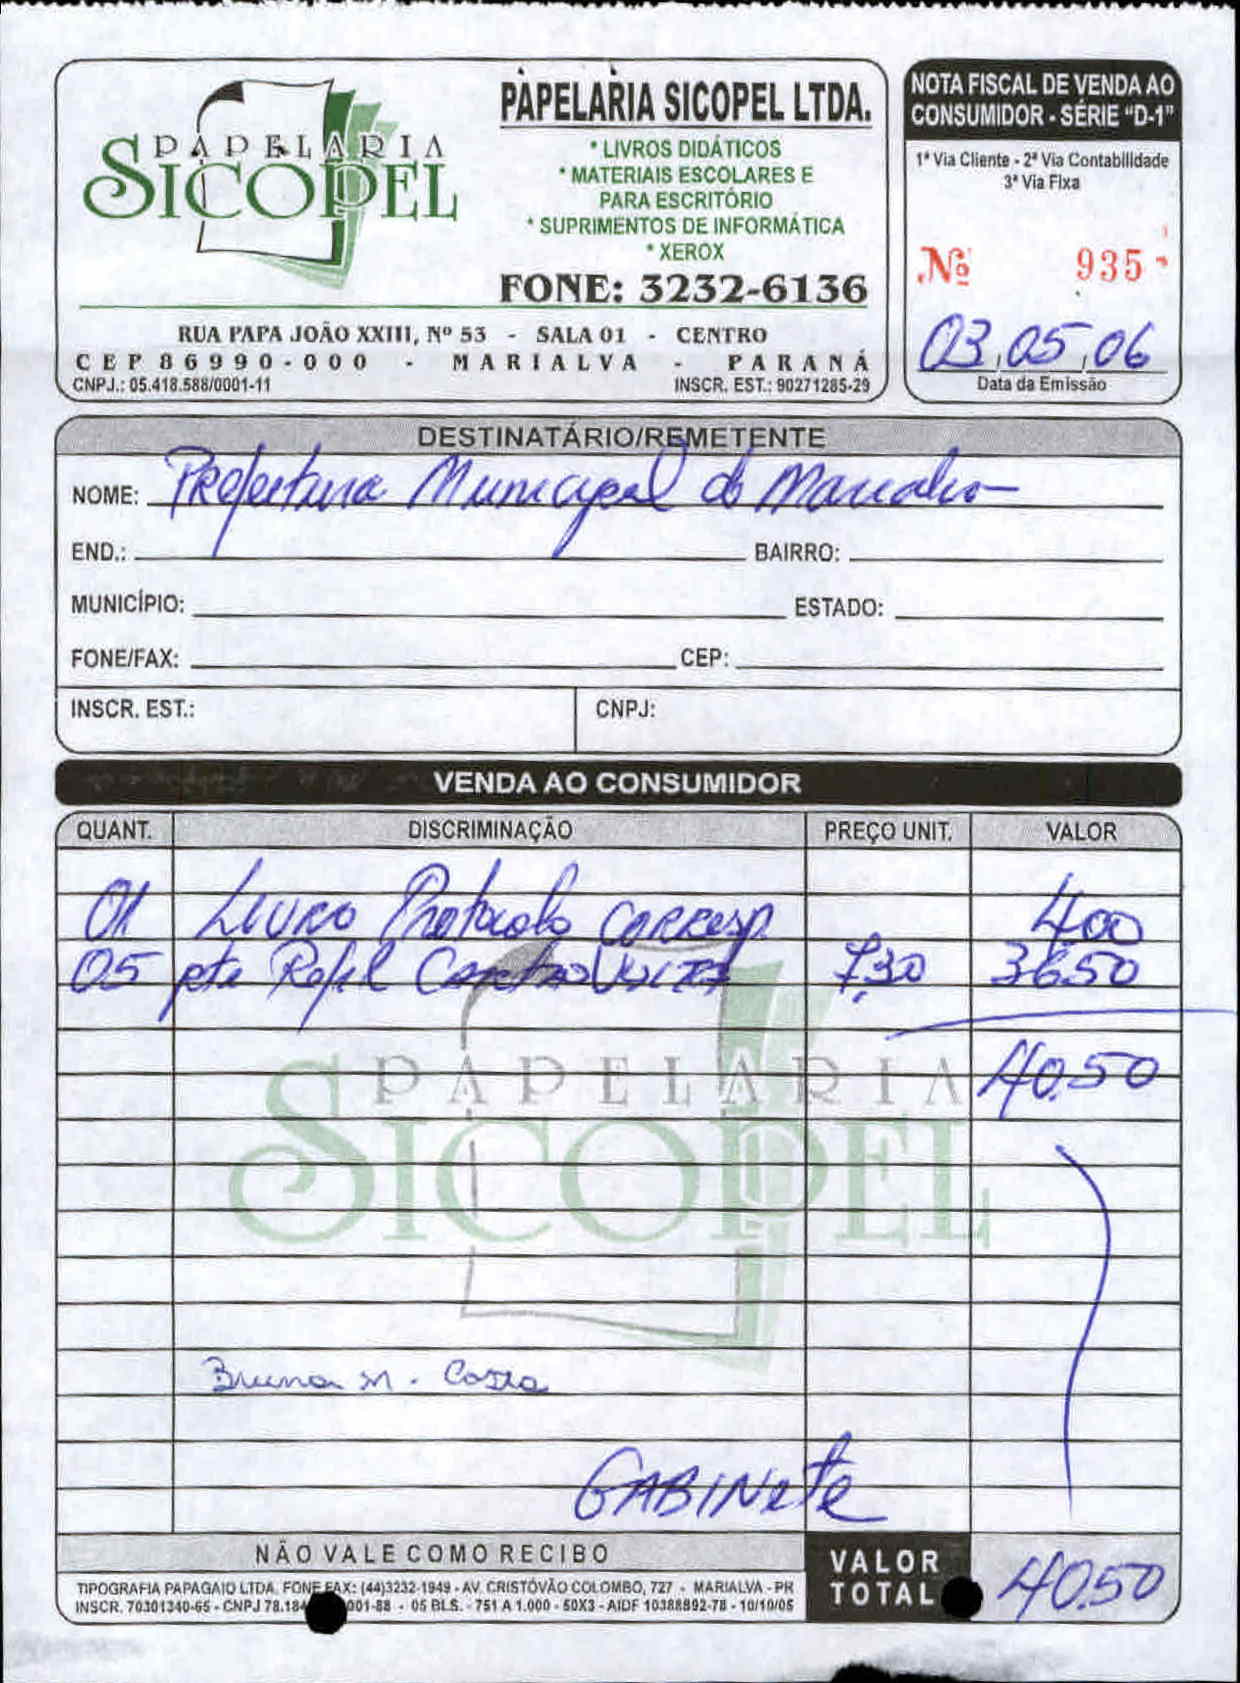 PAPELARIA
SICOPEL
PAPELARIA SICOPEL LTDA.
* LIVROS DIDÁTICOS
* MATERIAIS ESCOLARES E
PARA ESCRITÓRIO
* SUPRIMENTOS DE INFORMÁTICA
* XEROX
FONE: 3232-6136
RUA PAPA JOÃO XXIII, Nº 53 - SALA 01 - CENTRO
CEP 86990-000 - MARIALVA - PARANÁ
CNPJ.: 05.418.588/0001-11 INSCR. EST.: 90271285-29
NOTA FISCAL DE VENDA AO
CONSUMIDOR - SÉRIE "D-1"
1ª Via Cliente - 2ª Via Contabilidade
3ª Via Fixa
Nº 935
03 05 06
Data da Emissão
DESTINATÁRIO/REMETENTE
NOME: Prefeitura Municipal de Marialva
END.: BAIRRO:
MUNICÍPIO: ESTADO:
FONE/FAX: CEP:
INSCR. EST.: CNPJ:
VENDA AO CONSUMIDOR
QUANT. DISCRIMINAÇÃO PREÇO UNIT. VALOR
01 Livro Protocolo CORRESP. 400
05 pte Refil 7,30 3650
4050
PAPELARIA
SICOPEL
Bruna M. Costa
GABINete
NÃO VALE COMO RECIBO
VALOR
TOTAL 4050
TIPOGRAFIA PAPAGAIO LTDA. FONE FAX: (44)3232-1949 - AV. CRISTÓVÃO COLOMBO, 727 - MARIALVA - PR
INSCR. 70301340-65 - CNPJ 78.18 001-88 - 05 BLS. - 751 A 1.000 - 50X3 - AIDF 10388892-78 - 10/10/05